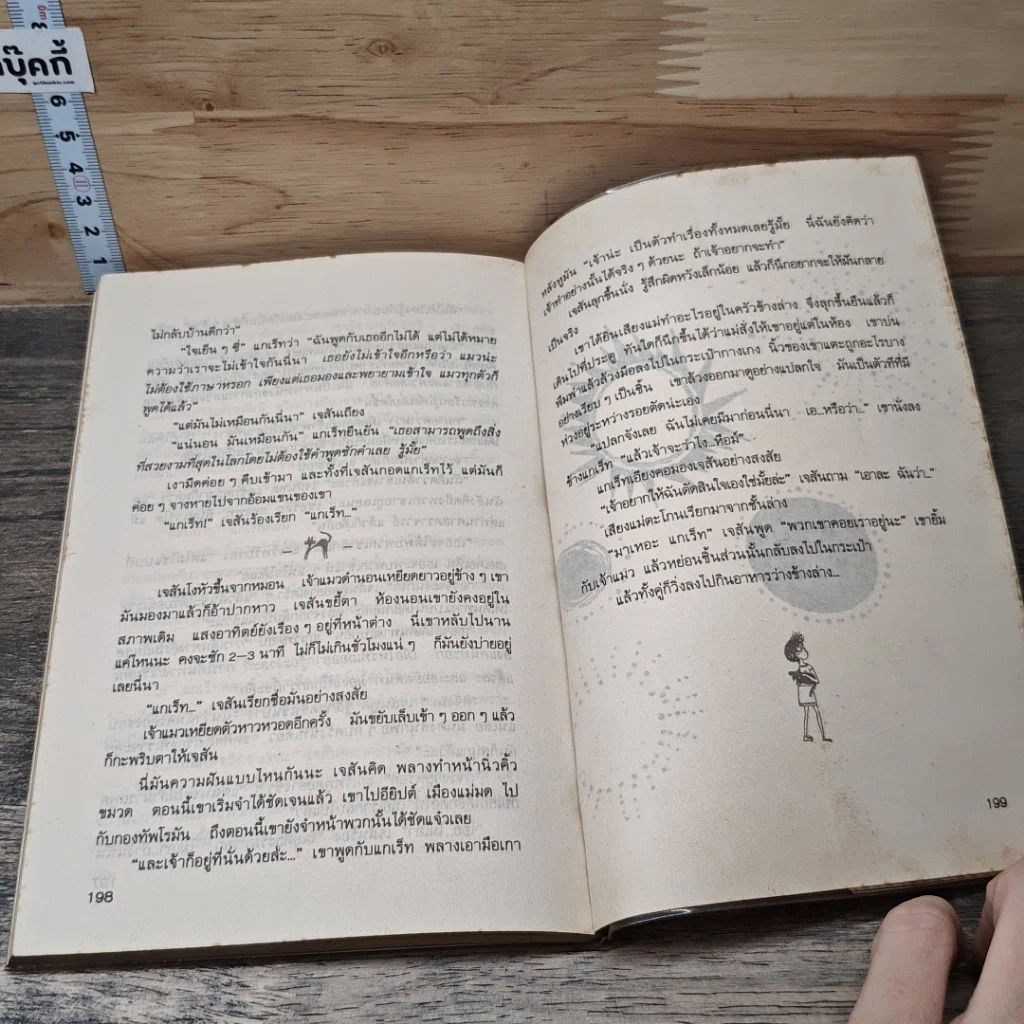 บุ๊คกี้
6
5
4
3
2
1
ไม่กลับบ้านดีกว่า"
"ใจเย็น ๆ ซี่" แกเร็ทว่า "ฉันพูดกับเธออีกไม่ได้ แต่ไม่ได้หมาย
ความว่าเราจะไม่เข้าใจกันนี่นา เธอยังไม่เข้าใจอีกหรือว่า แมวน่ะ
ไม่ต้องใช้ภาษาหรอก เพียงแต่เธอมองและพยายามเข้าใจ แมวทุกตัวก็
พูดได้แล้ว"
"แต่มันไม่เหมือนกันนี่นา" เจสันเถียง
"แน่นอน มันเหมือนกัน" แกเร็ทยืนยัน "เธอสามารถพูดถึงสิ่ง
ที่สวยงามที่สุดในโลกโดยไม่ต้องใช้คำพูดซักคำเลย รู้มั้ย"
เงามืดค่อย ๆ คืบเข้ามา และทั้งที่เจสันกอดแกเร็ทไว้ แต่มันก็
ค่อย ๆ จางหายไปจากอ้อมแขนของเขา
"แกเร็ท!" เจสันร้องเรียก "แกเร็ท..."
เจสันโงหัวขึ้นจากหมอน เจ้าแมวดำนอนเหยียดยาวอยู่ข้าง ๆ เขา
มันมองมาแล้วก็อ้าปากหาว เจสันขยี้ตา ห้องนอนเขายังคงอยู่ใน
สภาพเดิม แสงอาทิตย์ยังเรือง ๆ อยู่ที่หน้าต่าง นี่เขาหลับไปนาน
แค่ไหนนะ คงจะซัก 2—3 นาที ไม่ก็ไม่เกินชั่วโมงแน่ ๆ ก็มันยังบ่ายอยู่
เลยนี่นา
"แกเร็ท..." เจสันเรียกชื่อมันอย่างสงสัย
เจ้าแมวเหยียดตัวหาวหวอดอีกครั้ง มันขยับเล็บเข้า ๆ ออก ๆ แล้ว
ก็กะพริบตาให้เจสัน
นี่มันความฝันแบบไหนกันนะ เจสันคิด พลางทำหน้านิ่วคิ้ว
ขมวด ตอนนี้เขาเริ่มจำได้ชัดเจนแล้ว เขาไปอียิปต์ เมืองแม่มด ไป
กับกองทัพโรมัน ถึงตอนนี้เขายังจำหน้าพวกนั้นได้ชัดแจ๋วเลย
"และเจ้าก็อยู่ที่นั่นด้วยล่ะ..." เขาพูดกับแกเร็ท พลางเอามือเกา
198
หลังหูมัน "เจ้าน่ะ เป็นตัวทำเรื่องทั้งหมดเลยรู้มั้ย นี่ฉันยังคิดว่า
เจ้าทำอย่างนั้นได้จริง ๆ ด้วยนะ ถ้าเจ้าอยากจะทำ"
เจสันลุกขึ้นนั่ง รู้สึกผิดหวังเล็กน้อย แล้วก็นึกอยากจะให้มันกลาย
เป็นจริง
เขาได้ยินเสียงแม่ทำอะไรอยู่ในครัวข้างล่าง จึงลุกขึ้นยืนแล้วก็
เดินไปที่ประตู ทันใดก็นึกขึ้นได้ว่าแม่สั่งให้เขาอยู่แต่ในห้อง เขาบ่น
พึมพำแล้วล้วงมือลงไปในกระเป๋ากางเกง นิ้วของเขาแตะถูกอะไรบาง
อย่างเรียบ ๆ เป็นชิ้น เขาล้วงออกมาดูอย่างแปลกใจ มันเป็นตัวทีที่มี
ห่วงอยู่ระหว่างรอยตัดน่ะเอง
"แปลกจังเลย ฉันไม่เคยมีมาก่อนนี่นา เอ...หรือว่า..." เขานั่งลง
ข้างแกเร็ท "แล้วเจ้าจะว่าไง...หือม์"
แกเร็ทเอียงคอมองเจสันอย่างสงสัย
"เจ้าอยากให้ฉันตัดสินใจเองใช่มั้ยล่ะ" เจสันถาม "เอาละ ฉันว่า.."
เสียงแม่ตะโกนเรียกมาจากชั้นล่าง
"มาเหอะ แกเร็ท" เจสันพูด "พวกเขาคอยเราอยู่นะ" เขายิ้ม
กับเจ้าแมว แล้วหย่อนชิ้นส่วนนั้นกลับลงไปในกระเป๋า
แล้วทั้งคู่ก็วิ่งลงไปกินอาหารว่างข้างล่าง...
199